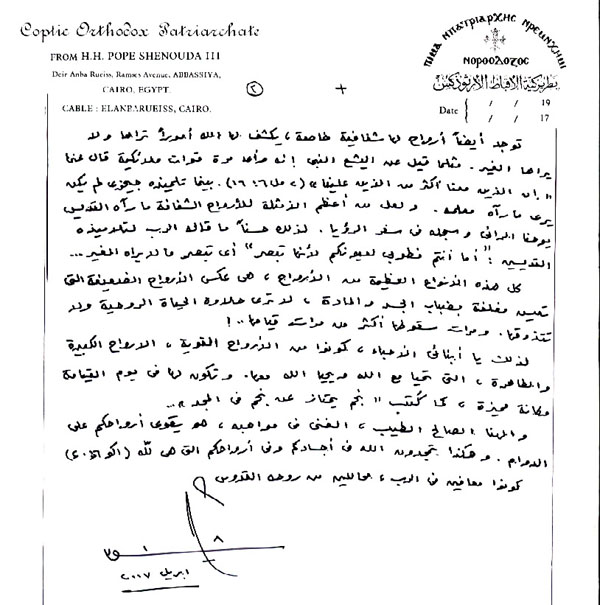 Coptic Orthodox Patriarchate
FROM H.H. POPE SHENOUDA III
Deir Anba Rueiss, Ramses Avenue, ABBASSIYA,
CAIRO, EGYPT.
CABLE : ELANBARUEISS, CAIRO.
بطريركية الأقباط الأرثوذكس
Date / / 19
/ / 17
(٢)
توجد أيضاً أرواح لها شفافية خاصة ، يكشف لها الله أموراً تراها ولا
يراها الغير . مثلما قيل عن اليشع النبى إنه رأى مرة قوات ملائكية قال عنها
"إن الذين معنا أكثر من الذين علينا" (٢ مل ٦ : ١٦) . بينما تلميذه جيحزى لم يكن
يرى ما رآه معلمه . ولعل من أعظم الأمثلة للأرواح الشفافة ما رآه القديس
يوحنا الرائى وسجله فى سفر الرؤيا . لذلك حسناً ما قاله الرب لتلاميذه
القديسين : "أما أنتم فطوبى لعيونكم لأنها تبصر" أى تبصر ما لا يراه الغير ...
كل هذه الأنواع العظيمة من الأرواح ، هى عكس الأرواح الضعيفة التى
تعيش مغلفة بضباب الجسد والمادة ، لا ترى حلاوة الحياة الروحية ولا
تتذوقها . ومرات سقوطها أكثر من مرات قيامها .. !
لذلك يا أبنائى الأحباء ، كونوا من الأرواح القوية ، الأرواح الكبيرة
والطاهرة ، التى تحيا مع الله ويحيا الله معها . وتكون لها فى يوم القيامة
مكانة مميزة ، كما كُتب "نجم يمتاز عن نجم فى المجد" ..
والهنا الصالح الطيب ، الغنى فى مواهبه ، هو يقوى أرواحكم على
الدوام . وهكذا تمجدون الله فى أجسادكم وفى أرواحكم التى هى لله (١كو ٦ : ٢٠)
كونوا معافين فى الرب ، محاللين من روحه القدوس
٨
ابريل ٢٠٠٧